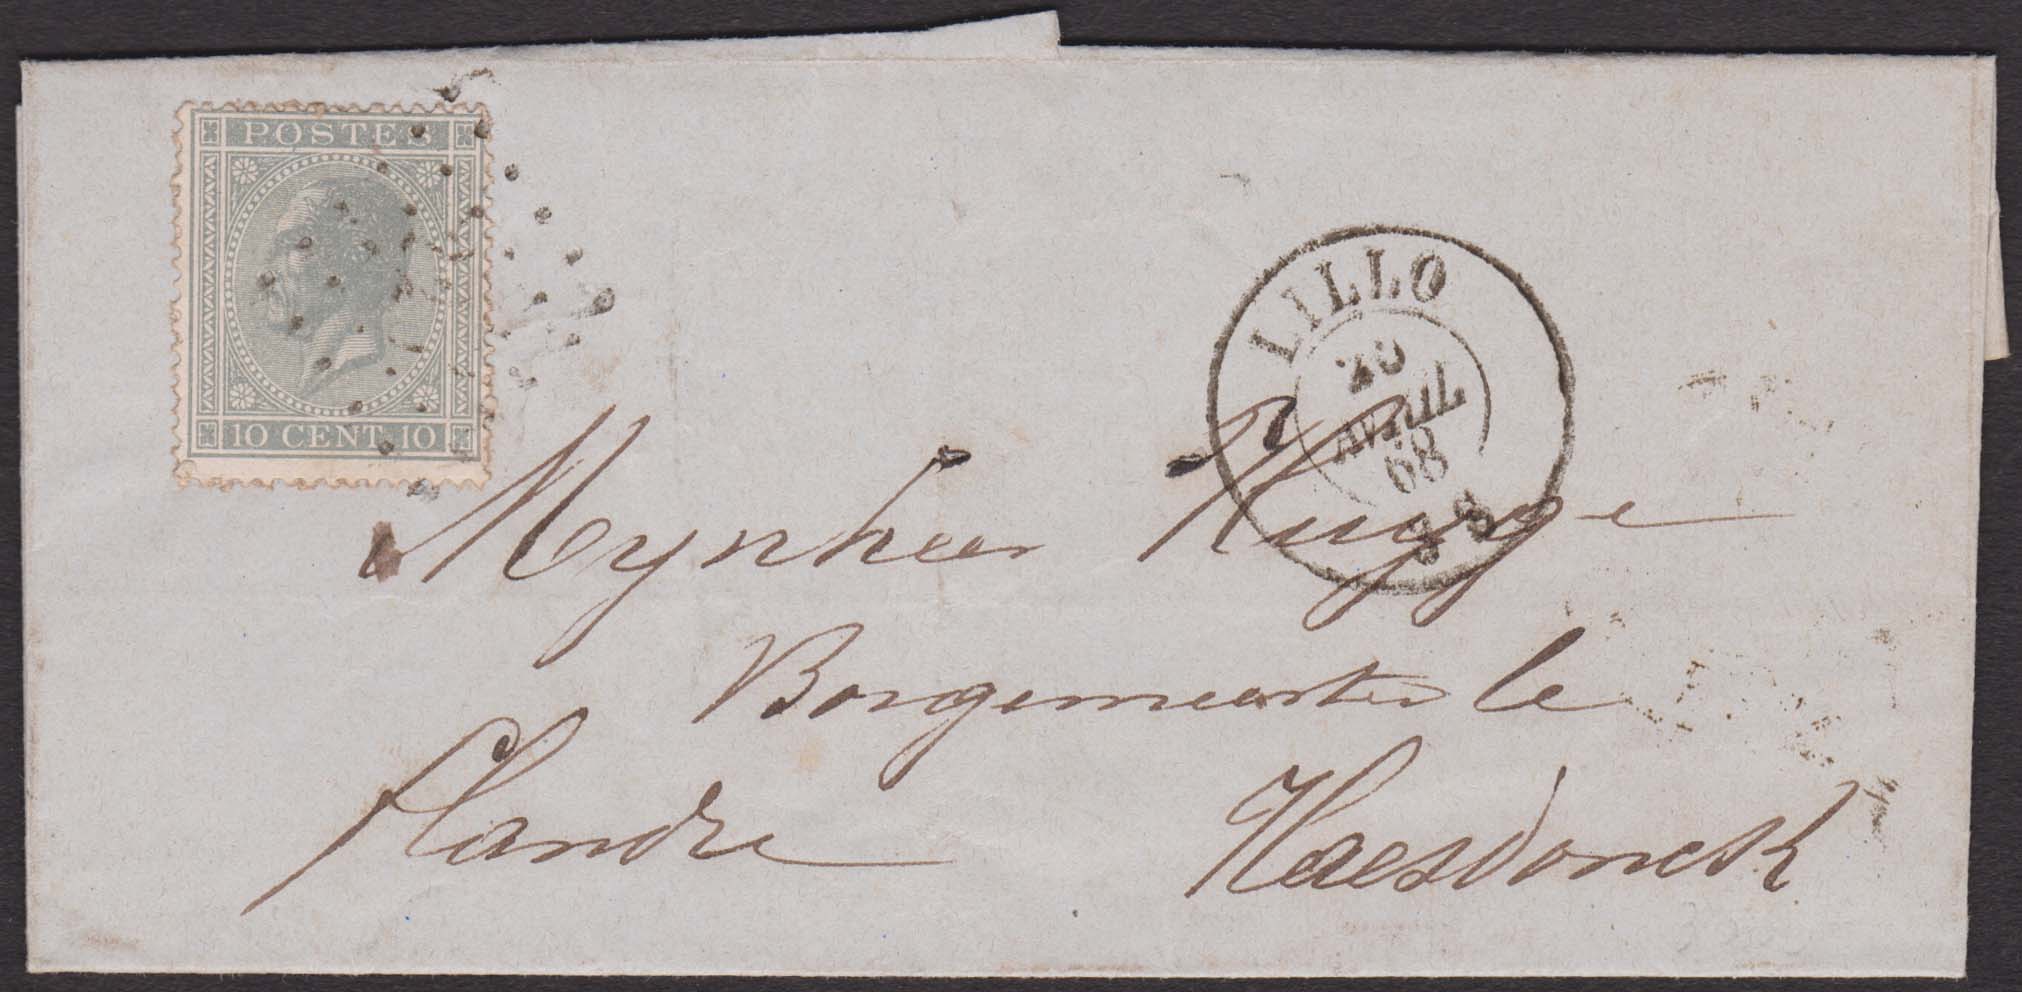 POSTES
10 CENT. 10
LILLO
20
AVRIL
68
8S
Mynheer Kuyge
Borgemeester le
flandre Haesdonck